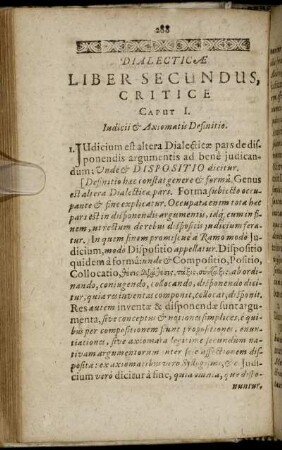 288
DIALECTICÆ
LIBER SECUNDUS,
CRITICE
CAPUT I.
Iudicii & Axiomatis Definitio.
1. JUdicium est altera Dialecticæ pars de dis-
ponendis argumentis ad benè judican-
dum: Unde & DISPOSITIO dicitur.
[Definitio hæc constat genere & formâ. Genus
est altera Dialecticæ pars. Forma subjecto occu-
pante & fine explicatur. Occupata enim tota hæc
pars est in disponendis argumentis, idq; eum in fi-
nem, ut rectum de rebus dispositis judicium fera-
tur. In quem finem promiscuè à Ramo modo Ju-
dicium, modo Dispositio appellatur. Dispositio
quidem à formâ: unde & Compositio, Positio,
Collocatio, ab ordi-
nando, conjugendo, collocando, disponendo dici-
tur, quia res inventas componit, collocat, disponit.
Res autem inventæ & disponendæ sunt argu-
menta, sive conceptus & notiones simplices, è qui-
bus per compositionem fiunt propositiones, enun-
tiationes, sive axiomata
tivam argumentorum inter se affectionem dis-
posita: ex axiomatibus verò Syllogismi, &c. Ju-
dicium verò dicitur à fine, quia omnia, quæ dispo-
nuntur,